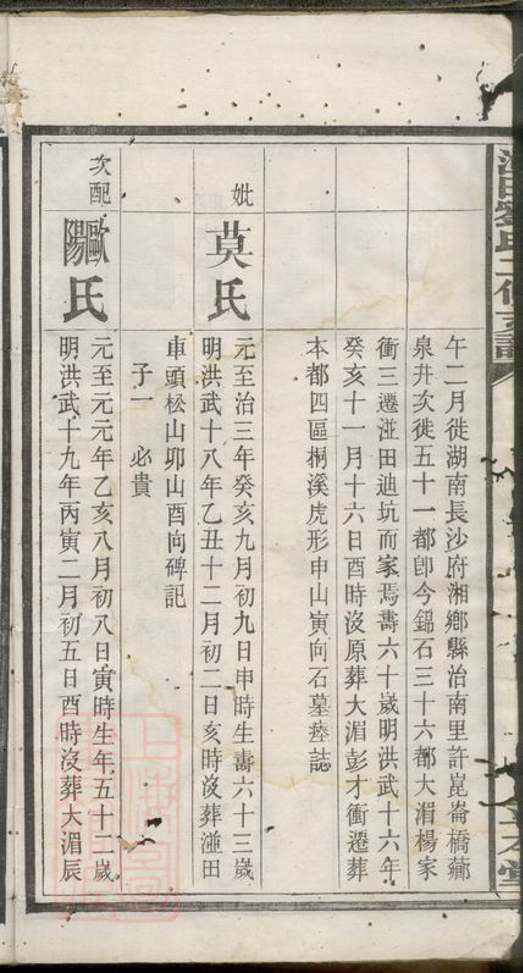 劉氏二修支譜
午二月徙湖南長沙府湘鄉縣治南里許崑崙橋薌
泉井次徙五十一都卽今錦石三十六都大湄楊家
衝三遷湴田迪坑而家焉壽六十歲明洪武十六年
癸亥十一月十六日酉時沒原葬大湄彭才衝遷葬
本都四區桐溪虎形申山寅向石墓瘞誌
妣
莫氏
元至治三年癸亥九月初九日申時生壽六十三歲
明洪武十八年乙丑十二月初二日亥時沒葬湴田
車頭松山卯山酉向碑記
子一 必貴
次配
歐陽氏
元至元元年乙亥八月初八日寅時生年五十二歲
明洪武十九年丙寅二月初五日酉時沒葬大湄辰